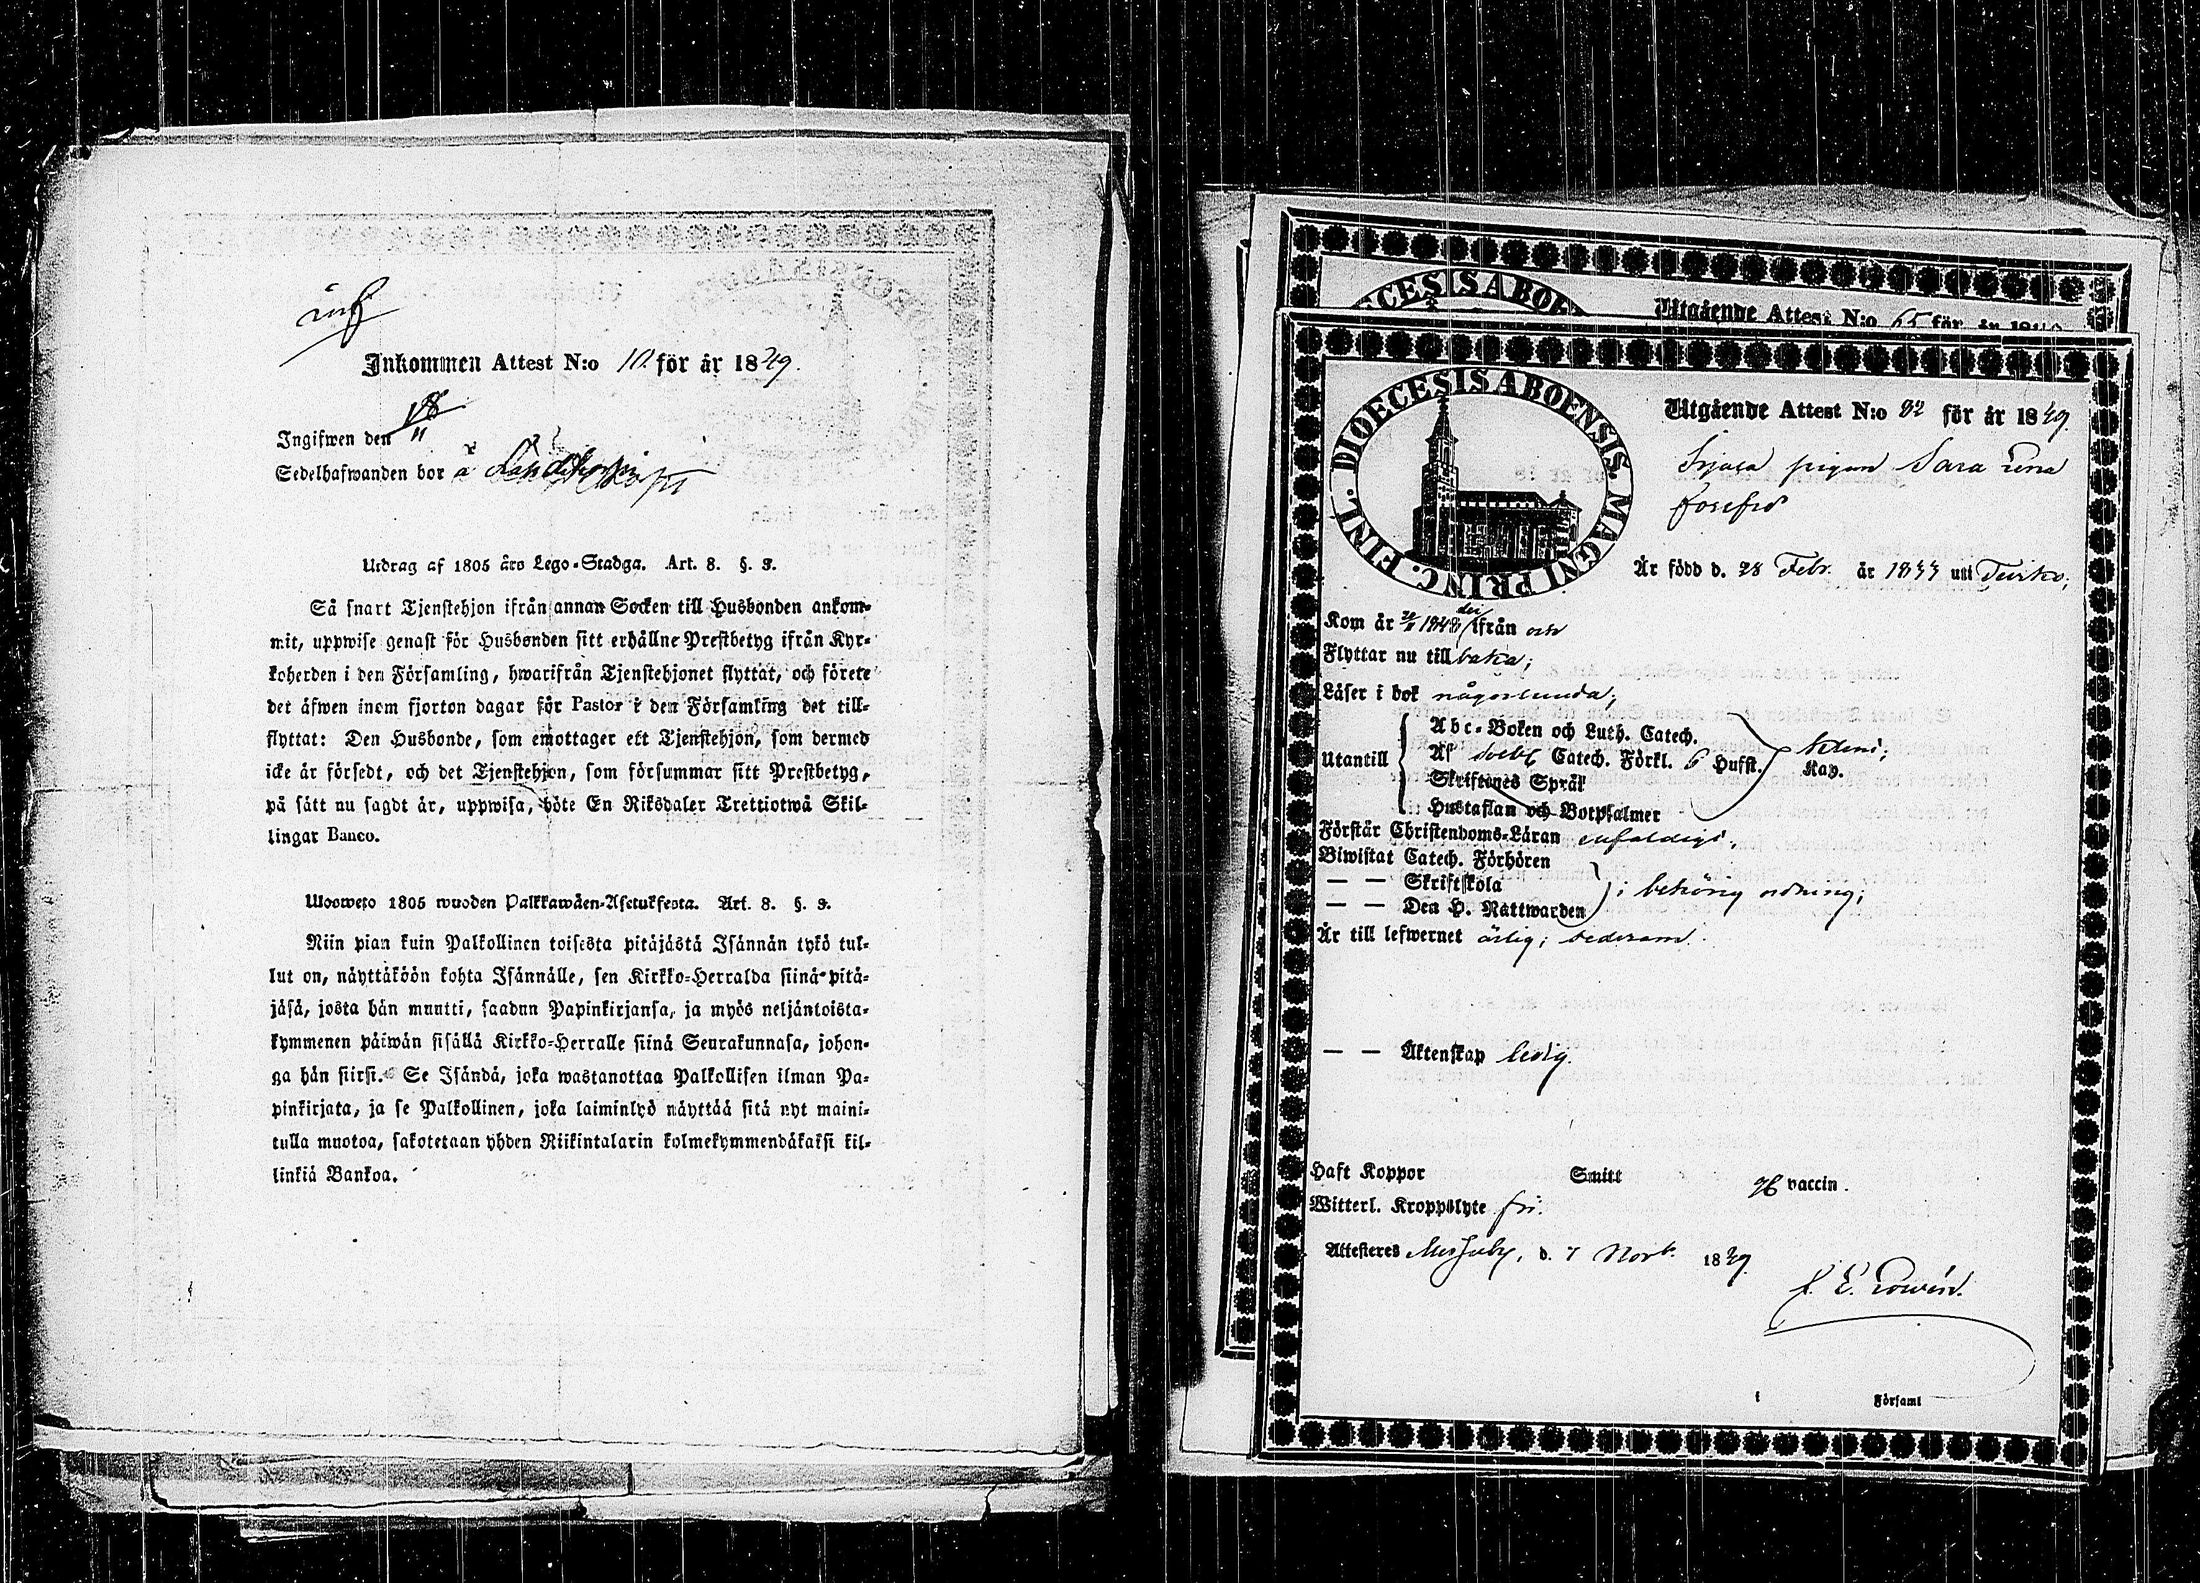 inf
Inkommen Attest N:o 10. för år 1849.
Ingifwen den 18/11
Sedelhafwanden bor å
Utdrag af 1805 års Lego-Stadga. Art. 8. §. 3.
Så snart Tjenstehjon ifrån annan Socken till Husbonden ankom-
mit, uppwise genast för Husbonden sitt erhållne Prestbetyg ifrån Kyr-
koherden i den Församling, hwarifrån Tjenstehjonet flyttat, och förete
det äfwen inom fjorton dagar för Pastor i den Församling det till-
flyttat: Den Husbonde, som emottager ett Tjenstehjon, som dermed
icke är försedt, och det Tjenstehjon, som försummar sitt Prestbetyg,
på sätt nu sagdt är, uppwisa, böte En Riksdaler Trettiotwå Skil-
lingar Banco.
Ulosweto 1805 wuoden Palkkawäen-Asetuksesta. Art. 8. §. 3.
Niin pian kuin Palkollinen toisesta pitäjästä Isännän tykö tul-
lut on, näyttäköön kohta Isännälle, sen Kirkko-Herralda siinä pitä-
jäsä, josta hän muutti, saadun Papinkirjansa, ja myös neljäntoista-
kymmenen päiwän sisällä Kirkko-Herralle siinä Seurakunnasa, johon-
ga hän siirsi. Se Isändä, joka wastanottaa Palkollisen ilman Pa-
pinkirjata, ja se Palkollinen, joka laiminlyö näyttää sitä nyt maini-
tulla muotoa, sakotetaan yhden Riikintalarin kolmekymmendäkaksi kil-
linkiä Bankoa.
DIOECESIS ABOENSIS
Utgående Attest N:o 65 för år 18
DIOECESIS ABOENSIS. MAGNI PRINC. FINL.
Utgående Attest N:o 92 för år 1849.
pigan Sara Lena
Josefsd
Är född d. 28 Febr. år 1833 uti
Kom år 1848 ifrån och
Flyttar nu tillbaka;
Läser i bok någorlunda;
Utantill
Abc-Boken och Luth. Catech.
Af Svebel Catech. Förkl. 6 Hufst.
Kap.
Skriftenes Språk
Hustaflan och Botpsalmer
Förstår Christendoms-Läran enfaldigt,
Biwistat Catech. Förhören
— — Skriftskola
i behörig ordning;
— — Den H. Nattwarden
Är till lefwernet ärlig; bedesam.
— — Äktenskap ledig.
Haft Koppor Smitt vaccin.
Witterl. Kroppslyte fri.
Attesteres d. 7 Novb. 1849
Församl